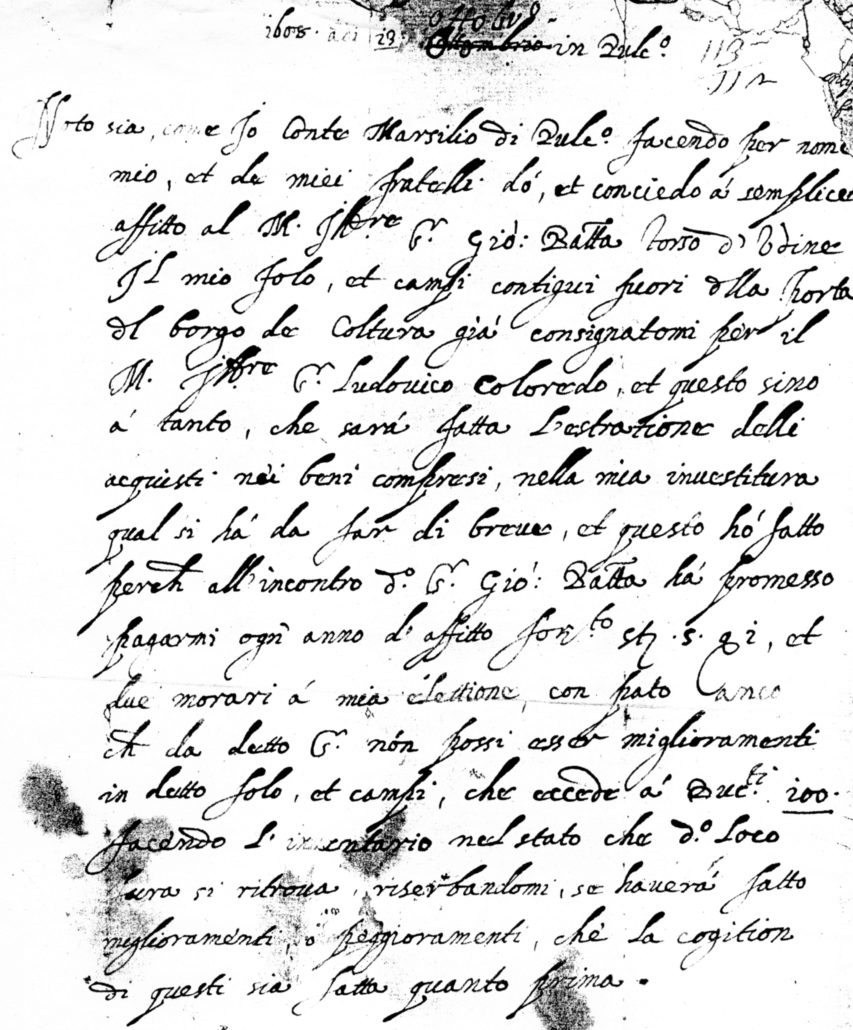 ottobr.º
1608. adi 13. in Pulc.º
113
112
Noto sia, come Jo Conte Marsilio di Pulc.º facendo per nome
mio, et de miei fratelli dó, et conciedo á semplice
affitto al M. Ill.re S.r Gió: Batta Torso d'Udine
Il mio solo, et campi contigui fuori dlla Porta
dl borgo de Coltura giá consignatomi per il
M. Ill.re S.r Ludovico Coloredo, et questo sino
á tanto, che sará fatta l'estratione delli
acquisti nei beni compresi, nella mia investitura
qual si há da far di breve, et questo hó fatto
perch all'incontro d.º S.r Gió: Batta há promesso
pagarmi ogn' anno d'affitto for.to st. 5. q i, et
due morari á mia elettione, con pato anco
ch da detto S.r nón possi esser miglioramenti
in detto solo, et campi, che eccede á Duc.ti 100.
facendo l'inventario nel stato che d.º loco
hora si ritrova, riserbandomi, se haverá fatto
miglioramenti, ó peggioramenti, che la cogition
di questi sia fatta quanto prima.